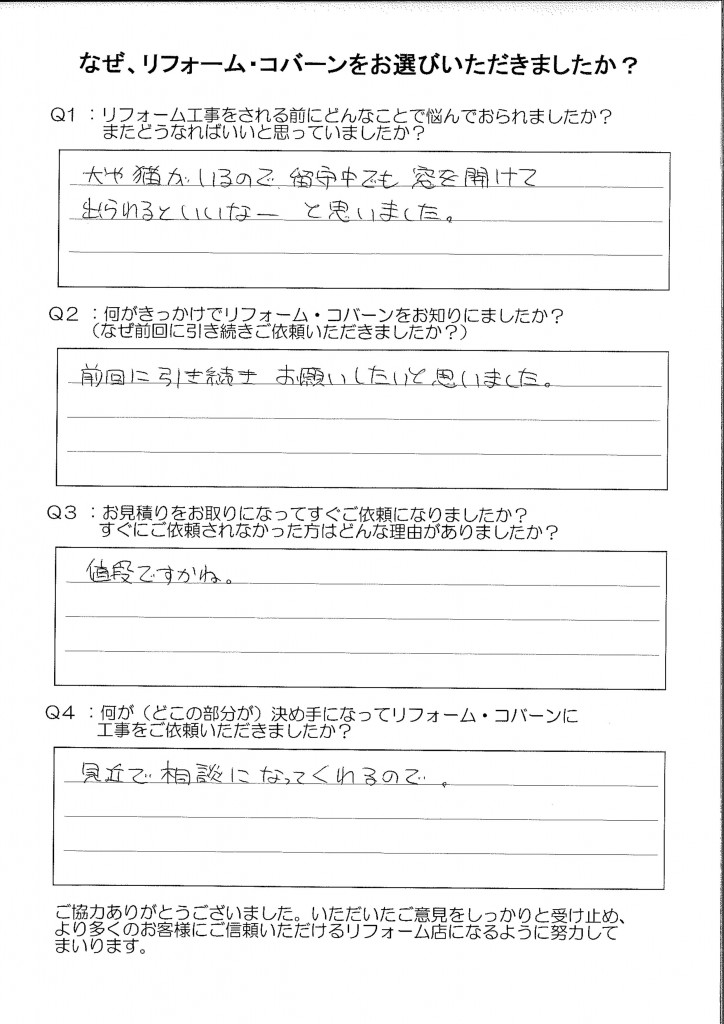 なぜ、リフォーム・コバーンをお選びいただきましたか？
Q1 ：リフォーム工事をされる前にどんなことで悩んでおられましたか？
またどうなればいいと思っていましたか？
犬や猫がいるので 留守中でも 窓を開けて
出られるといいなー と思いました。
Q2 ：何がきっかけでリフォーム・コバーンをお知りにましたか？
（なぜ前回に引き続きご依頼いただきましたか？）
前回に引き続き お願いしたいと思いました。
Q3 ：お見積りをお取りになってすぐご依頼になりましたか？
すぐにご依頼されなかった方はどんな理由がありましたか？
値段ですかね。
Q4 ：何が（どこの部分が）決め手になってリフォーム・コバーンに
工事をご依頼いただきましたか？
見近で相談になってくれるので。
ご協力ありがとうございました。いただいたご意見をしっかりと受け止め、
より多くのお客様にご信頼いただけるリフォーム店になるように努力して
まいります。